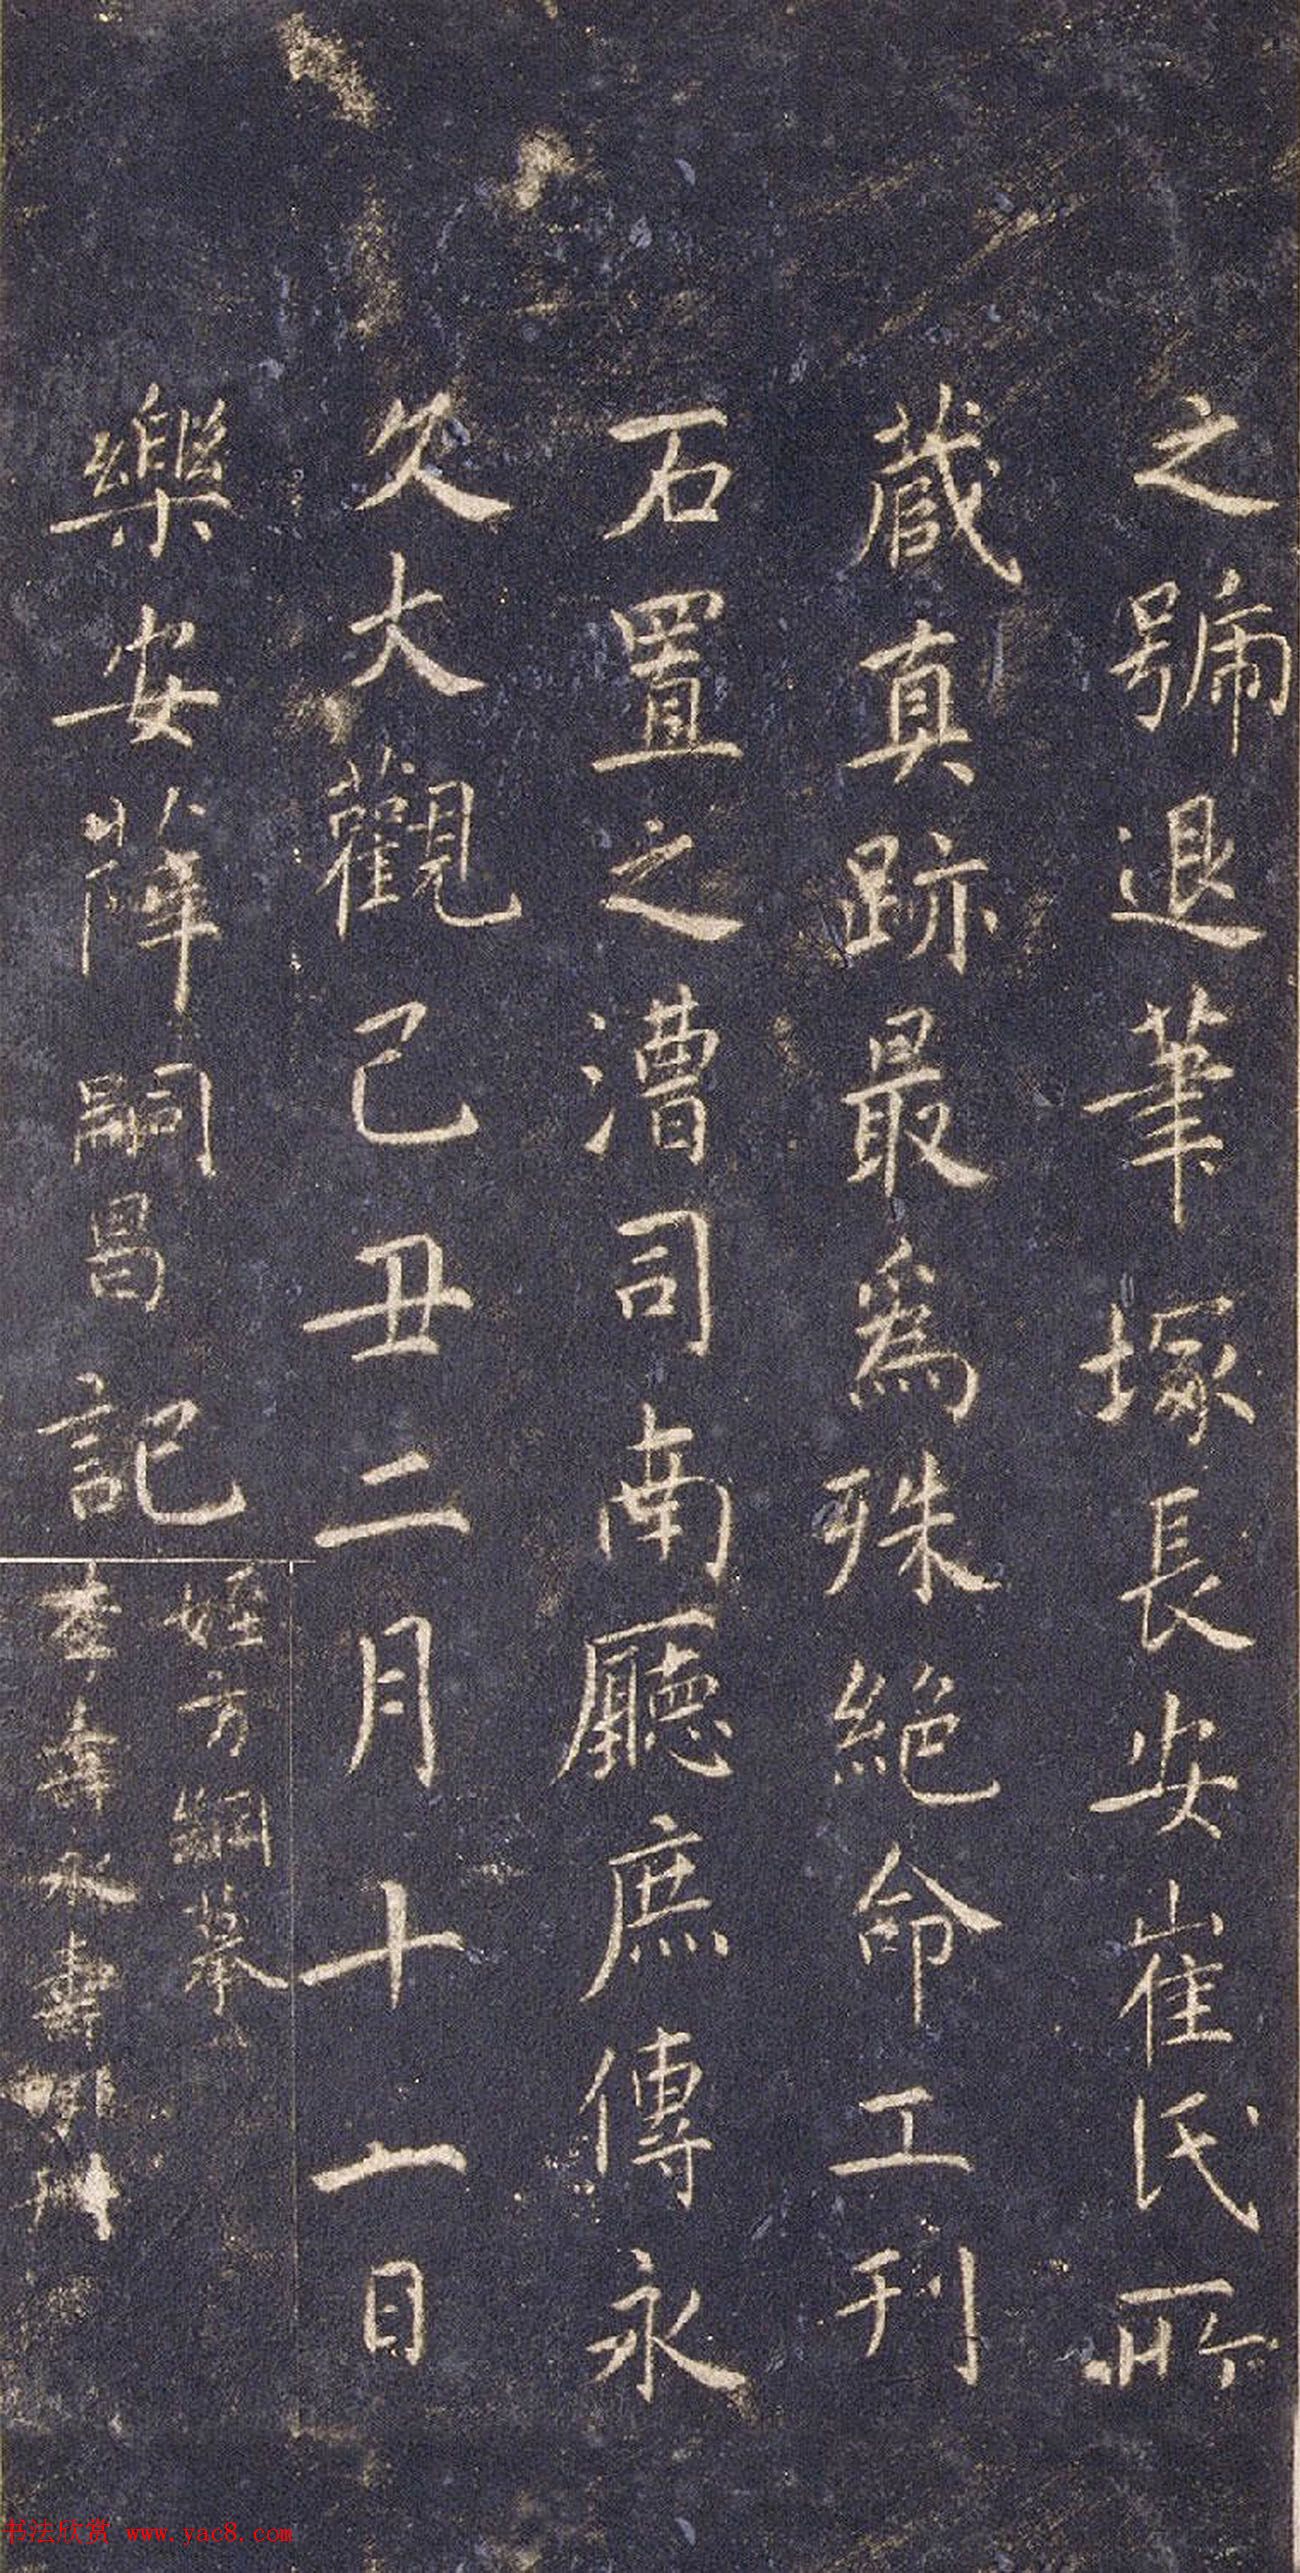 之號退筆塚長安崔氏所
藏真跡最為殊絕命工刊
石置之漕司南廳庶傳永
久大觀己丑二月十一日
樂安薛嗣昌記
姪方綱摹
李壽永壽明刊
书法欣赏 www.yac8.com